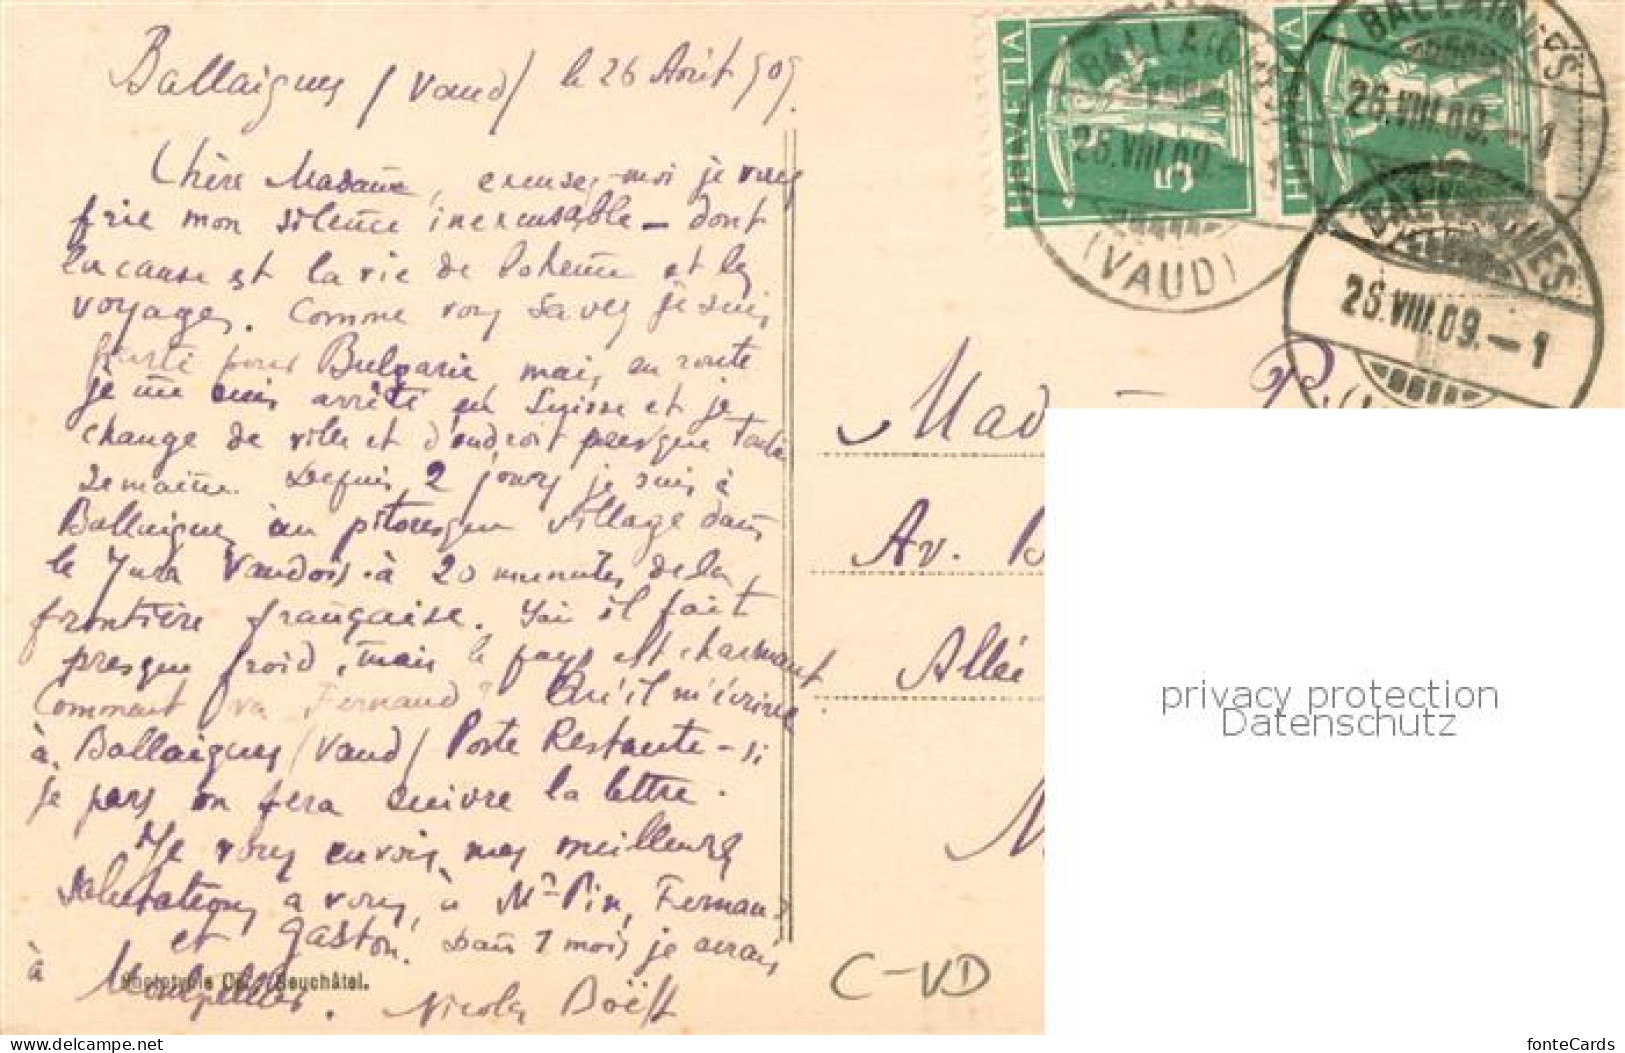 Ballaigues (Vaud) le 26 Août 909.
Chère Madame, excusez-moi je vous
prie mon silence inexcusable – dont
la cause est la vie de bohême et les
voyages. Comme vous savez je suis
parti pour Bulgarie mais en route
je me suis arrêté en Suisse et je
change de ville et d'endroit presque toute
semaine. Depuis 2 jours je suis à
Ballaigues un pitoresque village dans
le Jura Vaudois à 20 minutes de la
frontière française. Ici il fait
presque froid, mais le pays est charmant
Comment va Fernand? Qu'il m'écrive
à Ballaigues (Vaud) Poste Restante – si
je pars on fera suivre la lettre.
Je vous envois mes meilleures
salutations a vous, à Mr Pin, Fernand
et Gaston. Dans 1 mois je serais
à Montpellier. Nicolas
Phototypie Co., Neuchâtel.
HELVETIA 5
HELVETIA 5
BALLAIG
26.VIII.09.
(VAUD)
BALLAIGUES
26.VIII.09.–1
BALLAIGUES
26.VIII.09.–1
Mad
Av.
Allée
C-VD
privacy protection
Datenschutz
www.delcampe.net
fonteCards